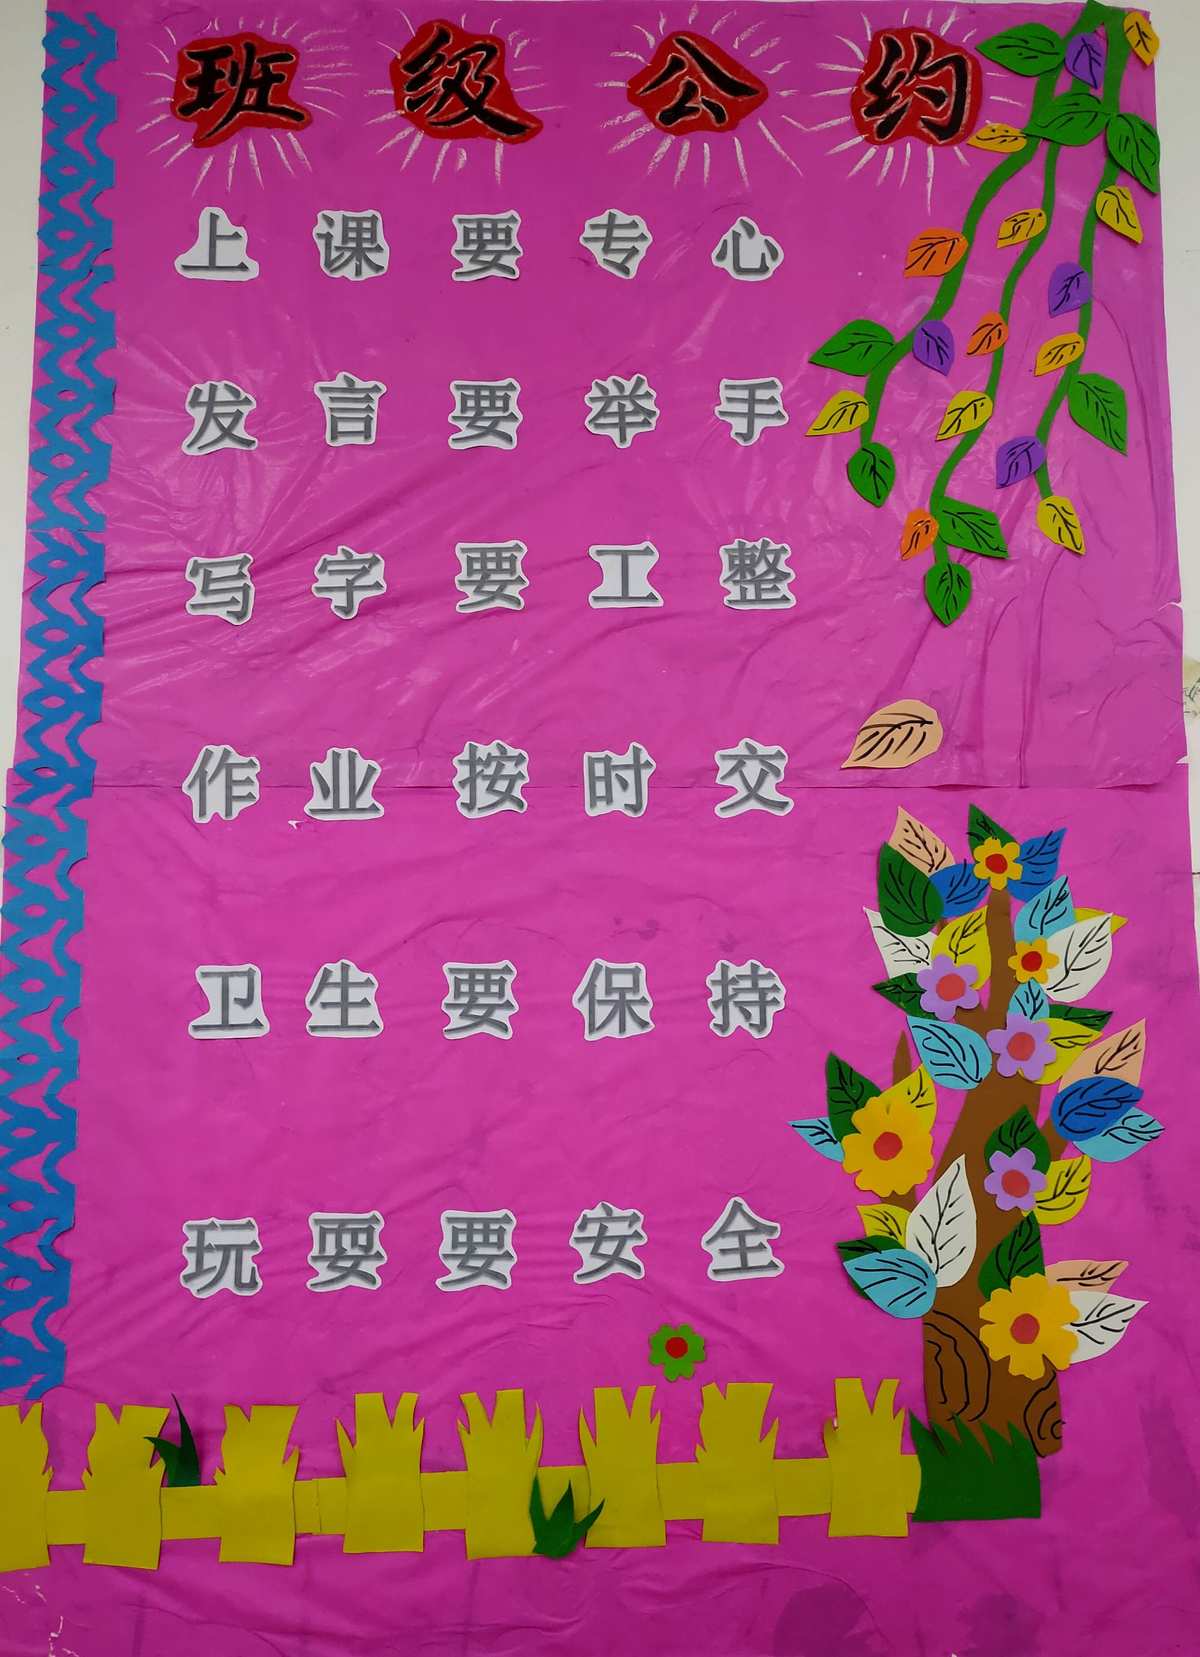 班级公约
上课要专心
发言要举手
写字要工整
作业按时交
卫生要保持
玩耍要安全